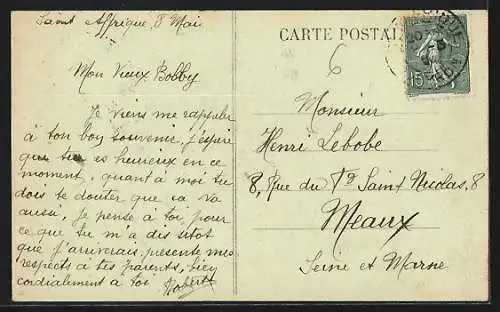 Saint Affrique 8 Mai
CARTE POSTALE
6
15
Mon Vieux Bobby
Je viens me rappeler
à ton bon souvenir, j'espère
que tu es heureux en ce
moment, quant à moi tu
dois te douter que ça va
aussi, je pense à toi pour
ce que tu m'a dis sitot
que j'arriverais, presente mes
respects à tes parents, bien
cordialement à toi Robert
Monsieur
Henri Lebobe
8, Rue du Fg Saint Nicolas, 8
Meaux
Seine et Marne